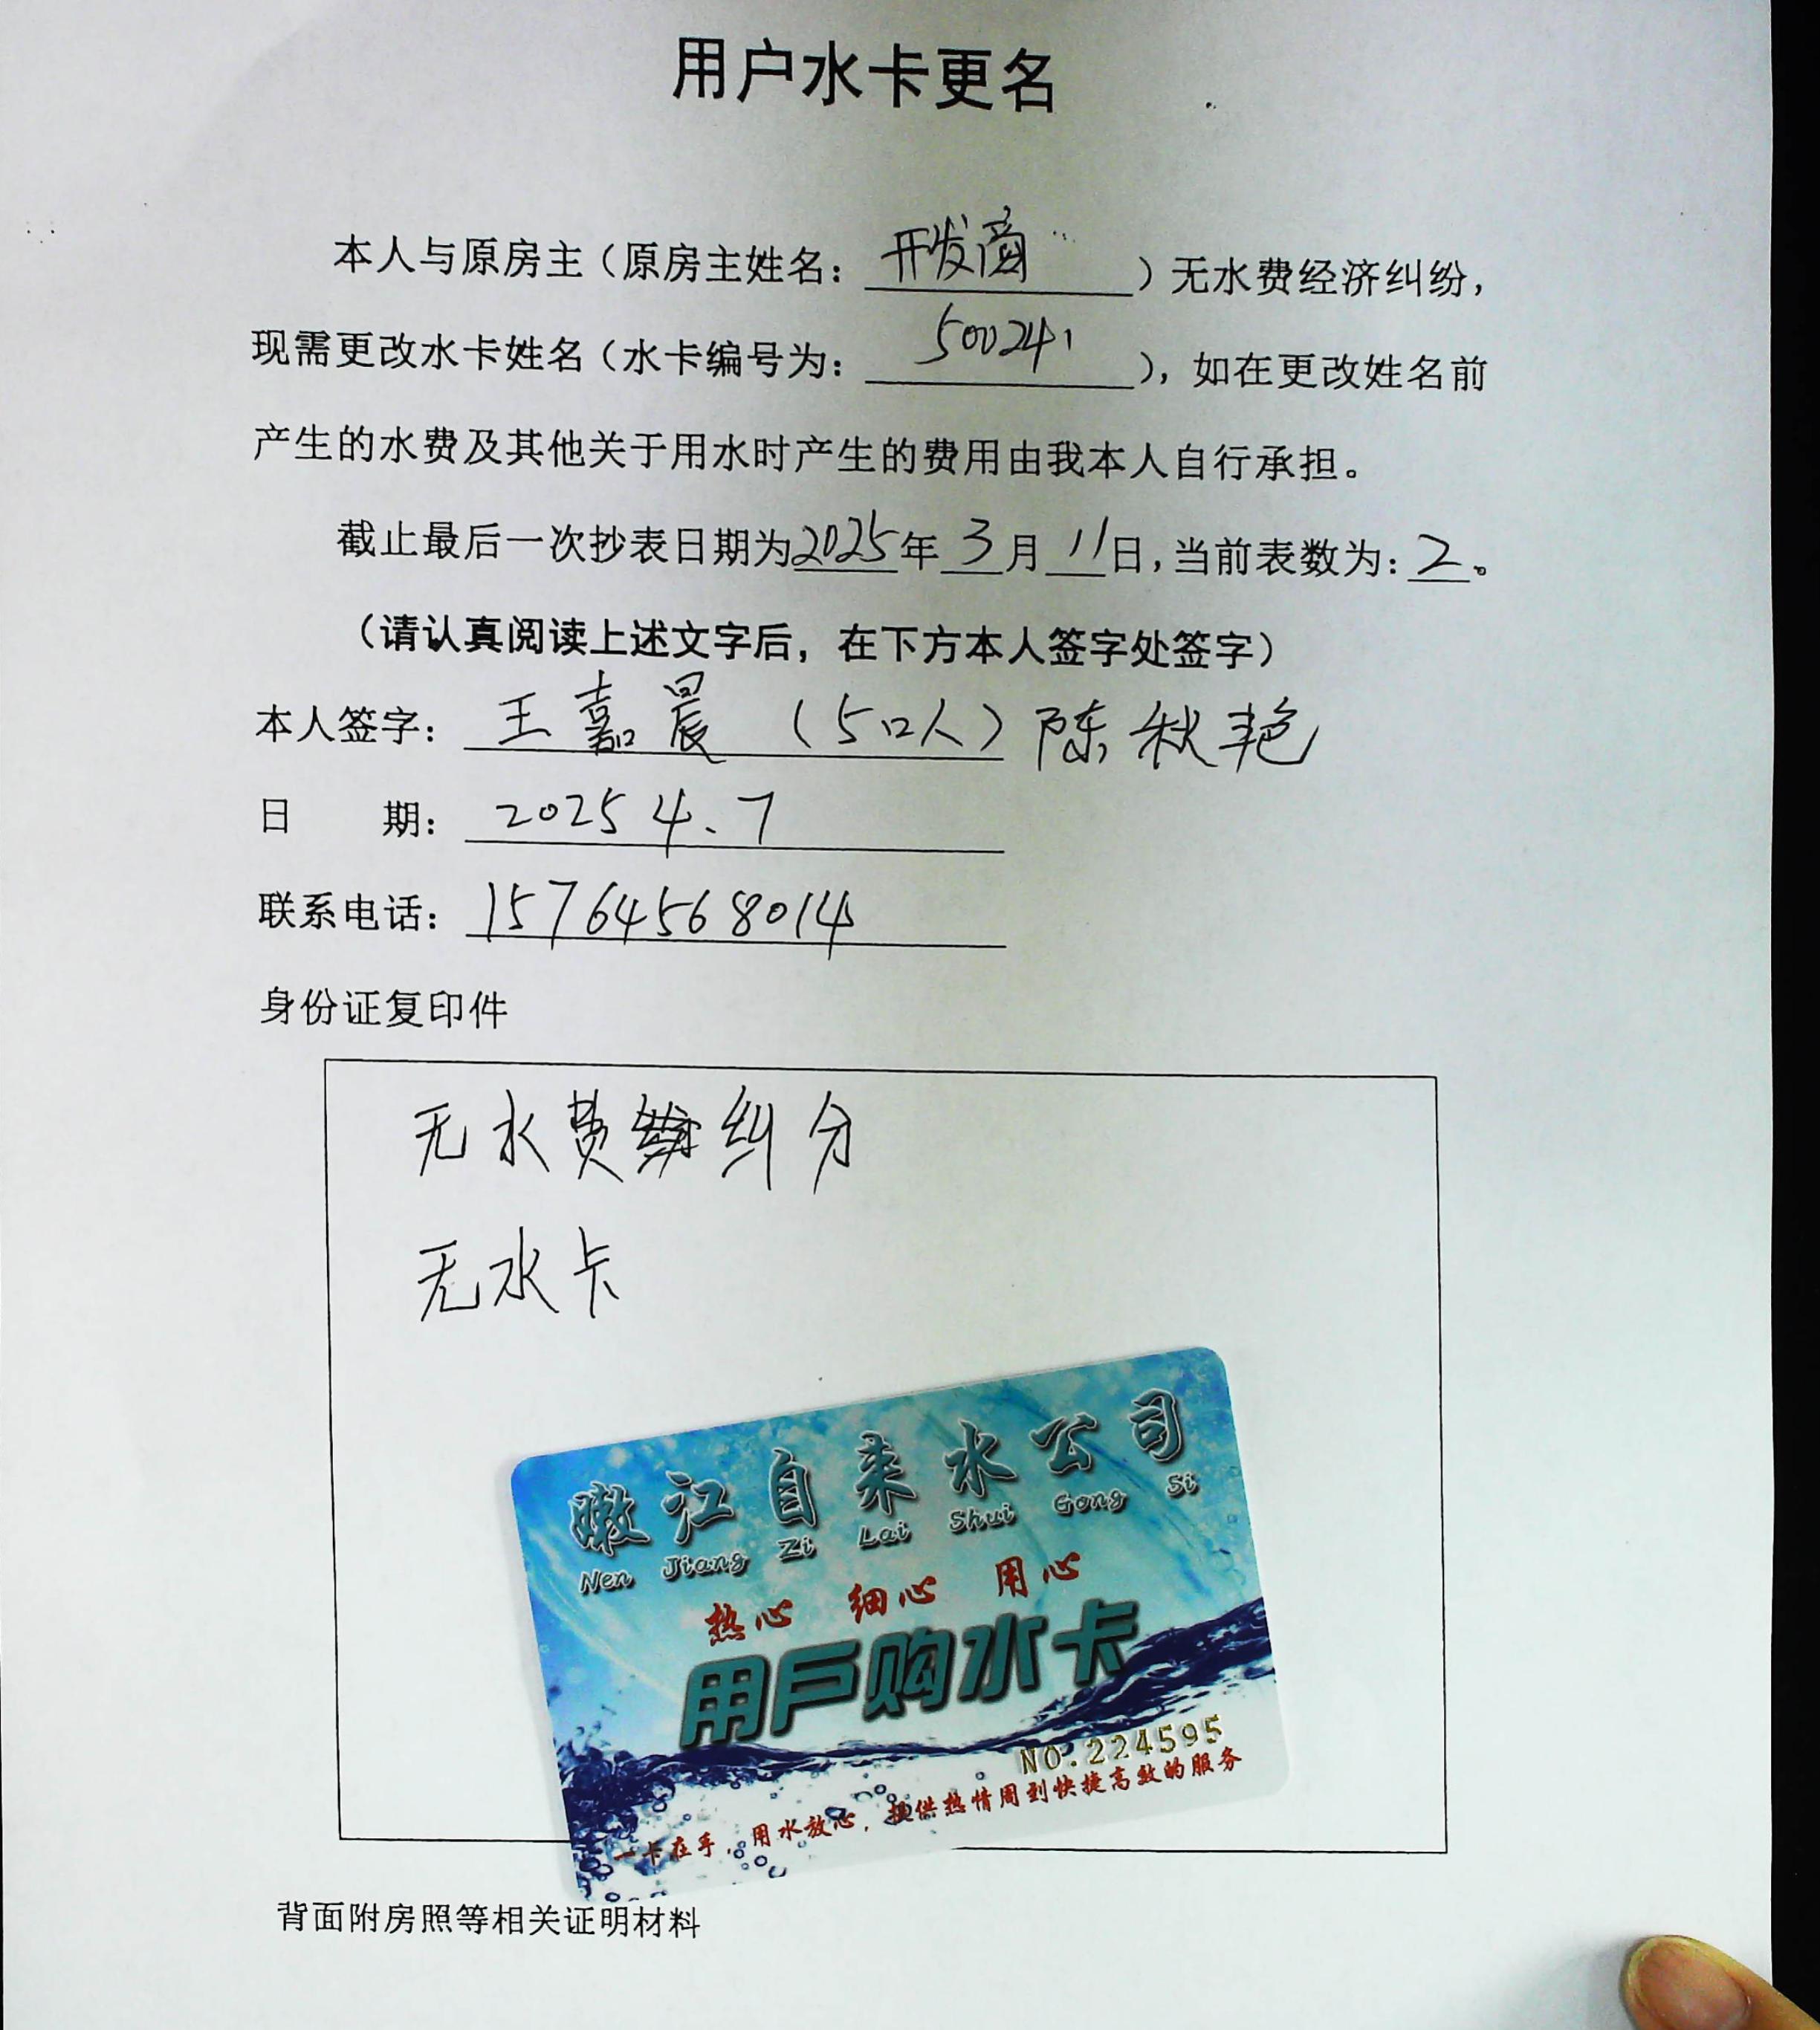 用户水卡更名
本人与原房主（原房主姓名：开发商）无水费经济纠纷，
现需更改水卡姓名（水卡编号为：500241），如在更改姓名前
产生的水费及其他关于用水时产生的费用由我本人自行承担。
截止最后一次抄表日期为2025年3月11日，当前表数为：2。
（请认真阅读上述文字后，在下方本人签字处签字）
本人签字：王嘉晨（5口人）陈秋艳
日 期：2025 4.7
联系电话：15764568014
身份证复印件
无水费纠分
无水卡
嫩江自来水公司
Nen Jiang Zi Lai Shui Gong Si
热心 细心 用心
用户购水卡
NO.224595
一卡在手，用水放心，提供热情周到快捷高效的服务
背面附房照等相关证明材料